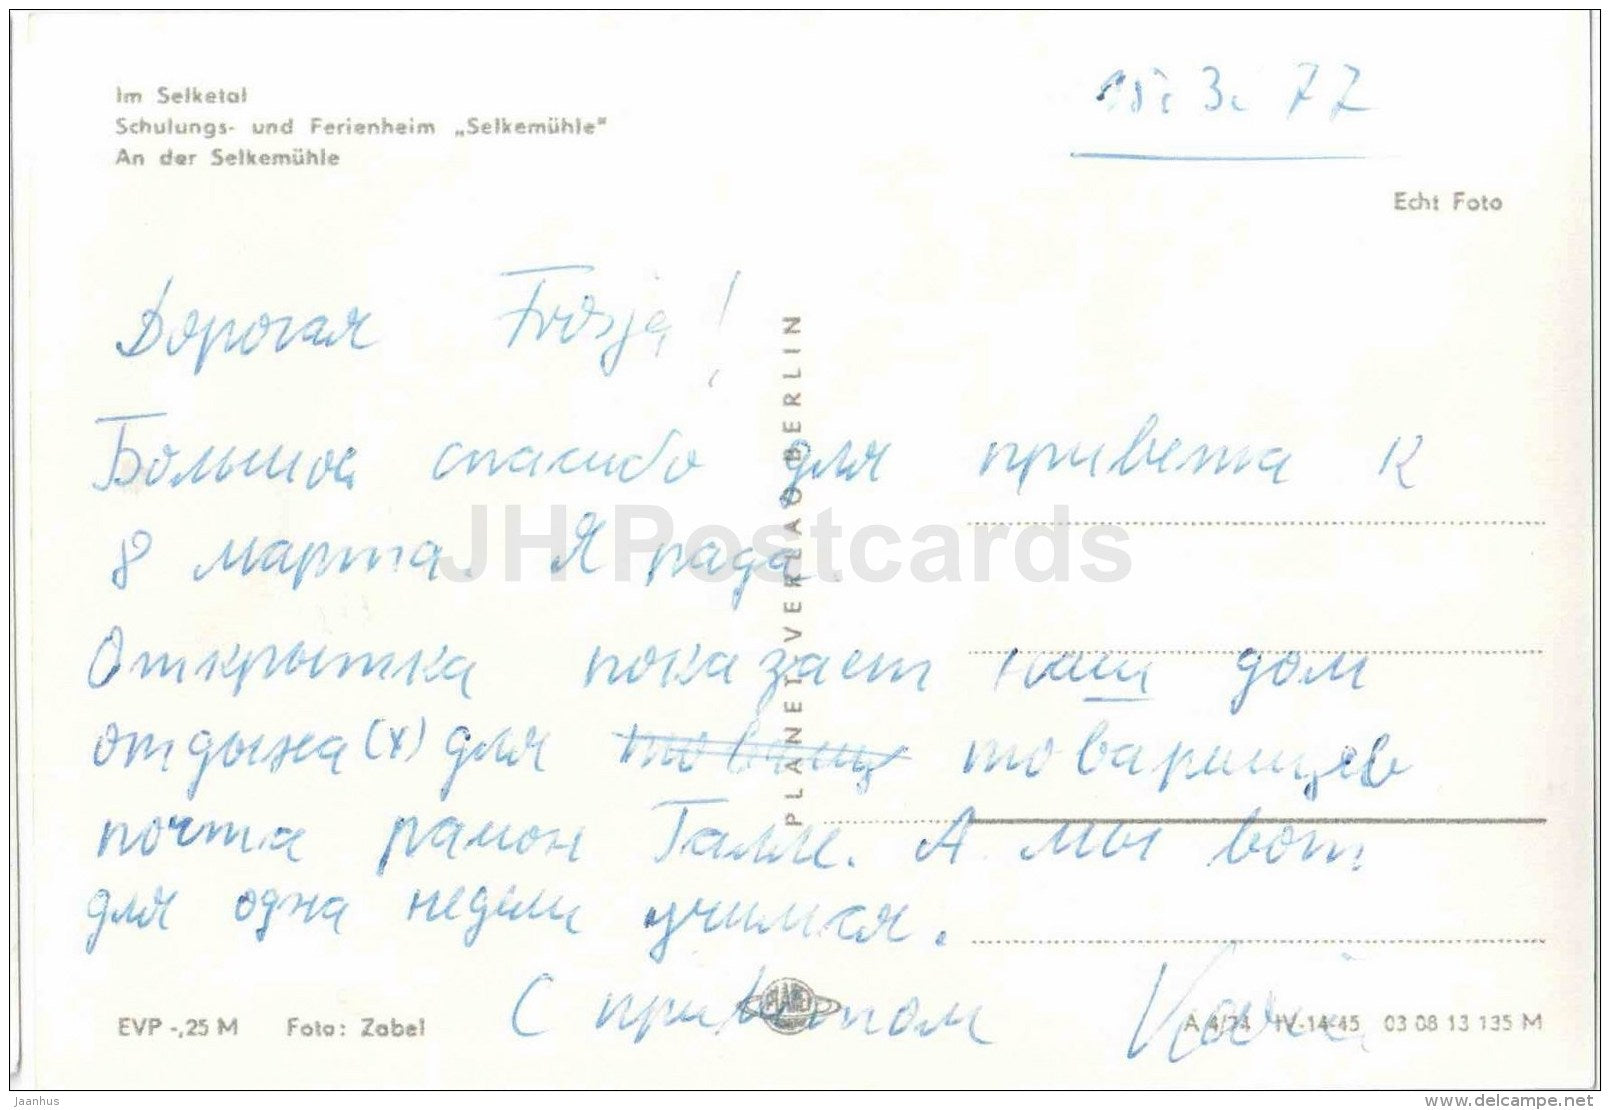 Im Selketal
Schulungs- und Ferienheim „Selkemühle"
An der Selkemühle
3. 77
Echt Foto
Дорогая Frosja!
Большое спасибо для привета к
8 марта. Я рада.
Открытка показает наш дом
отдыха(х) для товарищев
почта район Галле. А мы вот
для одна недели учимся.
С приветом Karin
PLANET-VERLAG BERLIN
PLANET
EVP -,25 M Foto: Zabel
A 4/74 IV-14-45 03 08 13 135 M
JH Postcards
Jaanhus
www.delcampe.net